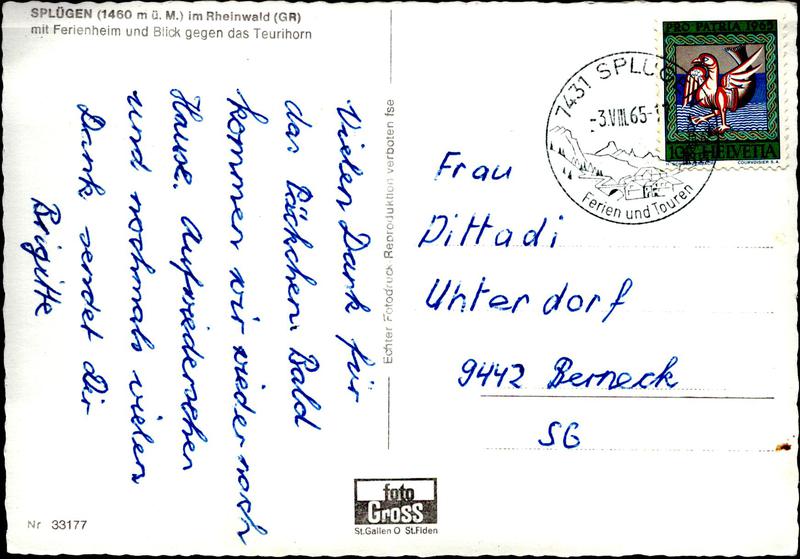 SPLÜGEN (1460 m ü. M.) im Rheinwald (GR)
mit Ferienheim und Blick gegen das Teurihorn
Vielen Dank für
das Päckchen. Bald
kommen wir wieder nach
Hause. Aufwiedersehen
und nochmals vielen
Dank sendet Dir
Brigitte
Echter Fotodruck Reproduktion verboten fse
7431 SPLÜGEN
-3.VIII.65-1
Ferien und Touren
PRO PATRIA 1965
10 HELVETIA
COURVOISIER S.A.
Frau
Dittadi
Unterdorf
9442 Berneck
SG
foto
Gross
St.Gallen O St.Fiden
Nr 33177